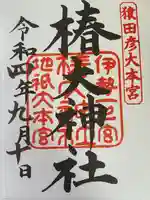 猿田彦大本宮
伊勢一之宮
椿大神社
地祇大本宮
令和四年九月十日